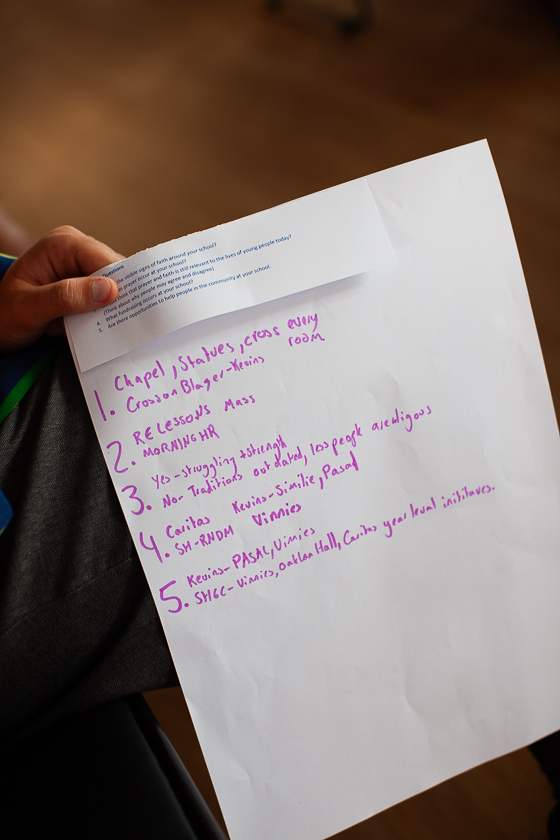 uestions
visible signs of faith around your school?
n prayer occur at your school?
think that prayer and faith is still relevant to the lives of young people today?
(Think about why people may agree and disagree)
4. What fundraising occurs at your school?
5. Are there opportunities to help people in the community at your school.
1. Chapel, Statues, cross every room
Cross on Blazer-Kevins
2. RE LESSONS Mass
MORNING HR
3. Yes - struggling + strength
No- Traditions outdated, less people are religous
4. Caritas Kevins-Similie, Pasal
SH-RNDM Vinnies
5. Kevins- PASAL, Vinnies
SHGC- Vinnies, Oaklea Hall, Caritas year level inititaves.